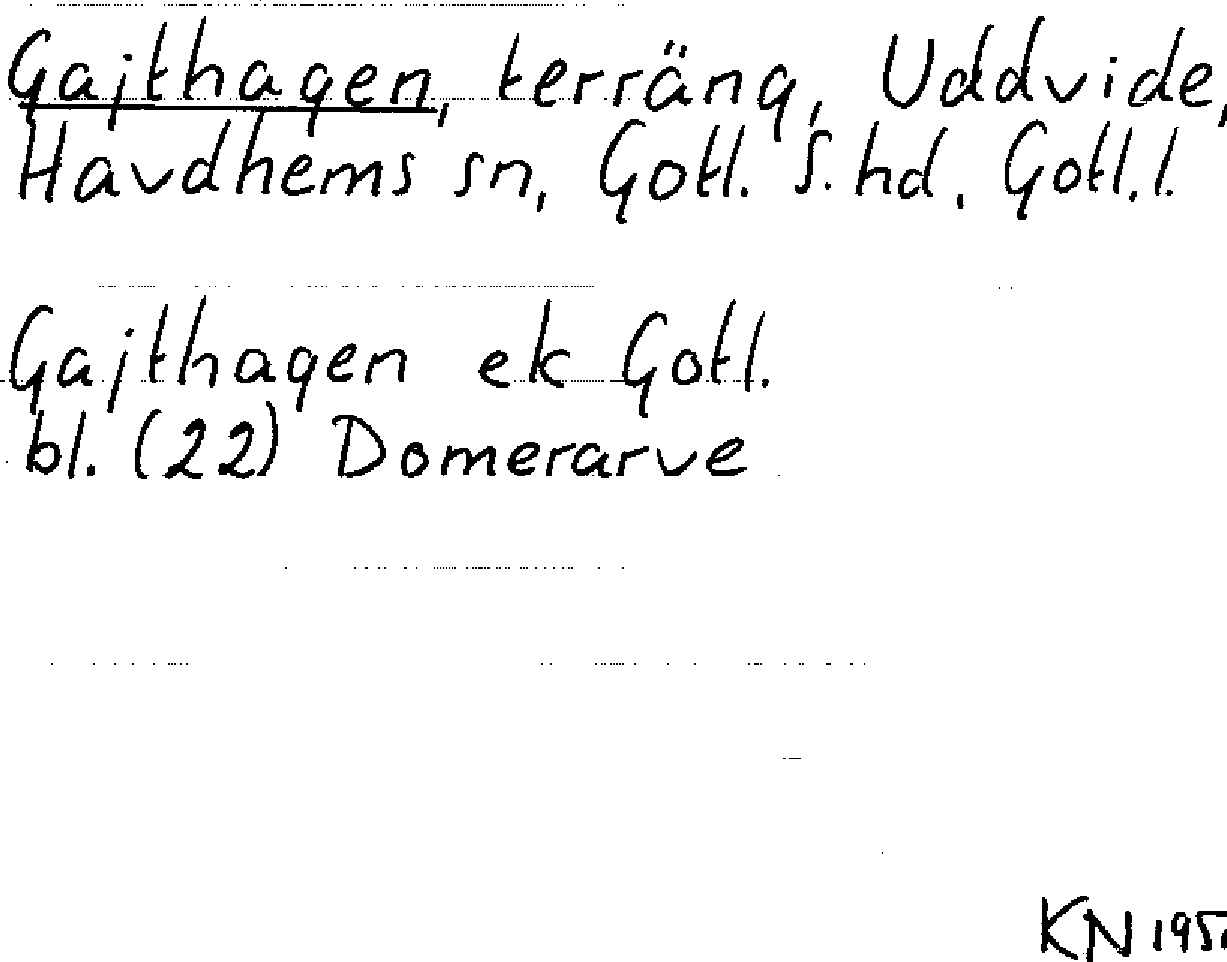 Gajthagen, terräng, Uddvide,
Havdhems sn, Gotl. S. hd, Gotl. l.
Gajthagen ek Gotl.
bl. (22) Domerarve
KN